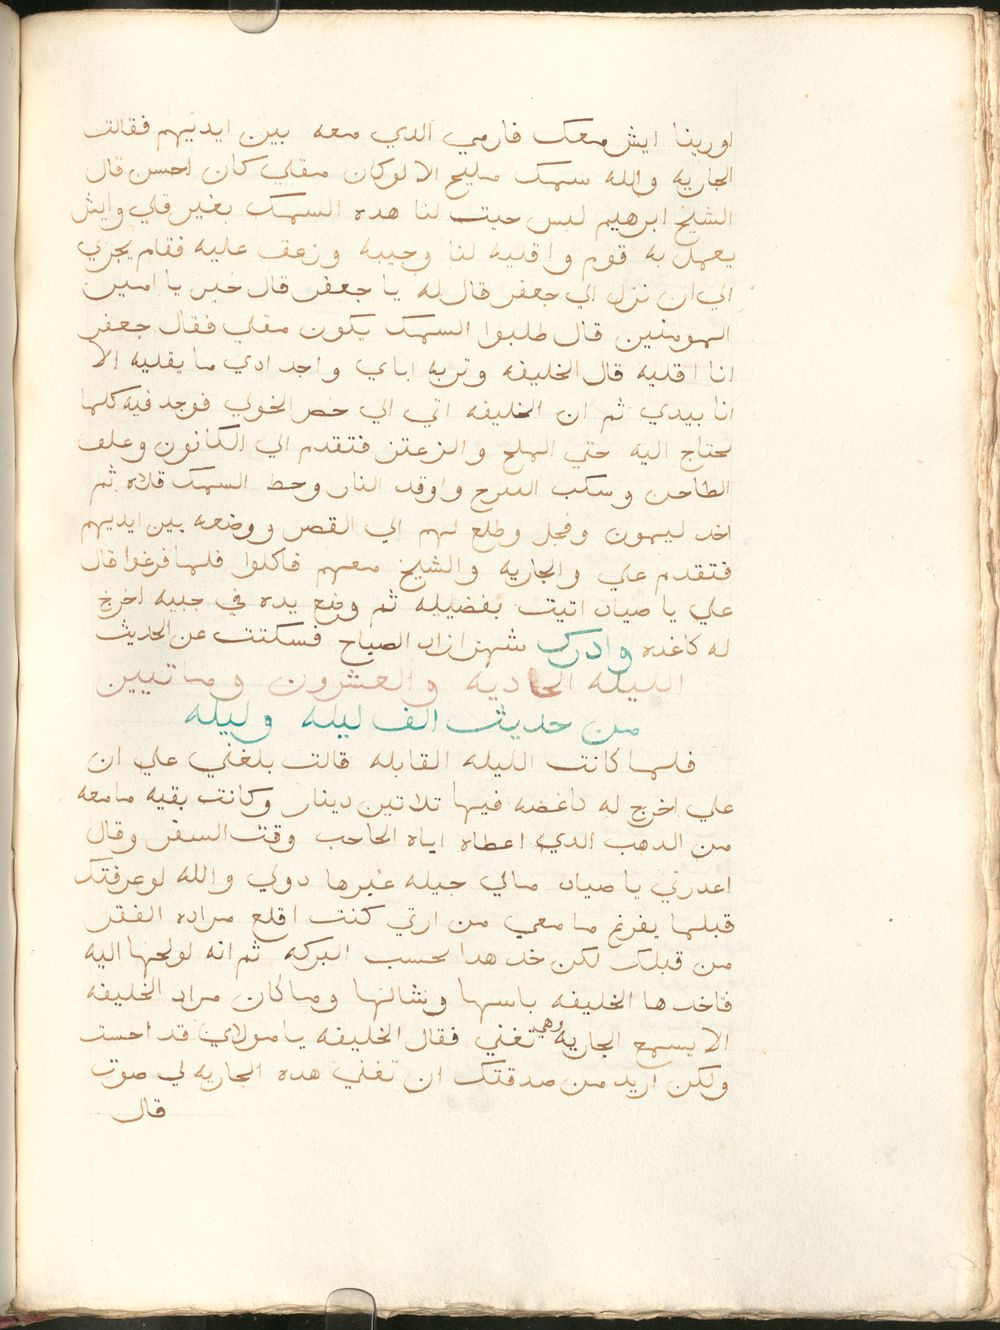 اورينا ايش معك فارمي الدي معه بين ايديهم فقالت
الجاريه والله سمك مليح الا لو كان مقلي كان احسن قال
الشيخ ابرهيم ليس جبت لنا هده السمك بغير قلي وايش
يعمل به قوم واقليه لنا وجيبه وزعف عليه فقام يجري
الي ان نزل الي جعفر قال له يا جعفر قال خير يا امين
المومنين قال طلبوا السمك يكون مقلي فقال جعفر
انا اقليه قال الخليفه وتربه اباي واجدادي ما يقليه الا
انا بيدي ثم ان الخليفه اتي الي خص الخولي فوجد فيه كلما
يحتاج اليه حتي الملح والزعتر فتقدم الي الكانون وعلف
الطاجن وسكب السيرج واوقد النار وحط السمك قلاه ثم
اخد ليمون وفجل وطلع لهم الي القصر ووضعه بين ايديهم
فتقدم علي والجاريه والشيخ معهم فاكلوا فلما فرغوا قال
علي يا صياد اتيت بفضيله ثم وضع يده في جيبه اخرج
له كاغده وادرك شهرازاد الصباح فسكتت عن الحديث
الليله الحاديه والعشرون وماتيين
من حديث الف ليله وليله
فلما كانت الليله القابله قالت بلغني علي ان
علي اخرج له كاغضه فيها تلاتين دينار وكانت بقيه ما معه
من الدهب الدي اعطاه اياه الحاجب وقت السفر وقال
اعدرني يا صياد مالي حيله غيرها دولي والله لو عرفتك
قبلما يفرغ ما معي من ارتي كنت اقلع مراده الفقر
من قبلك لكن خد هدا بحسب البركه ثم انه لوحها اليه
فاخدها الخليفه باسها وشالها وما كان مراد الخليفه
الا يسمع الجاريه وهي تغني فقال الخليفه يا مولاي قد احسنت
ولكن اريد من صدقتك ان تغني هده الجاريه لي صوت
قال